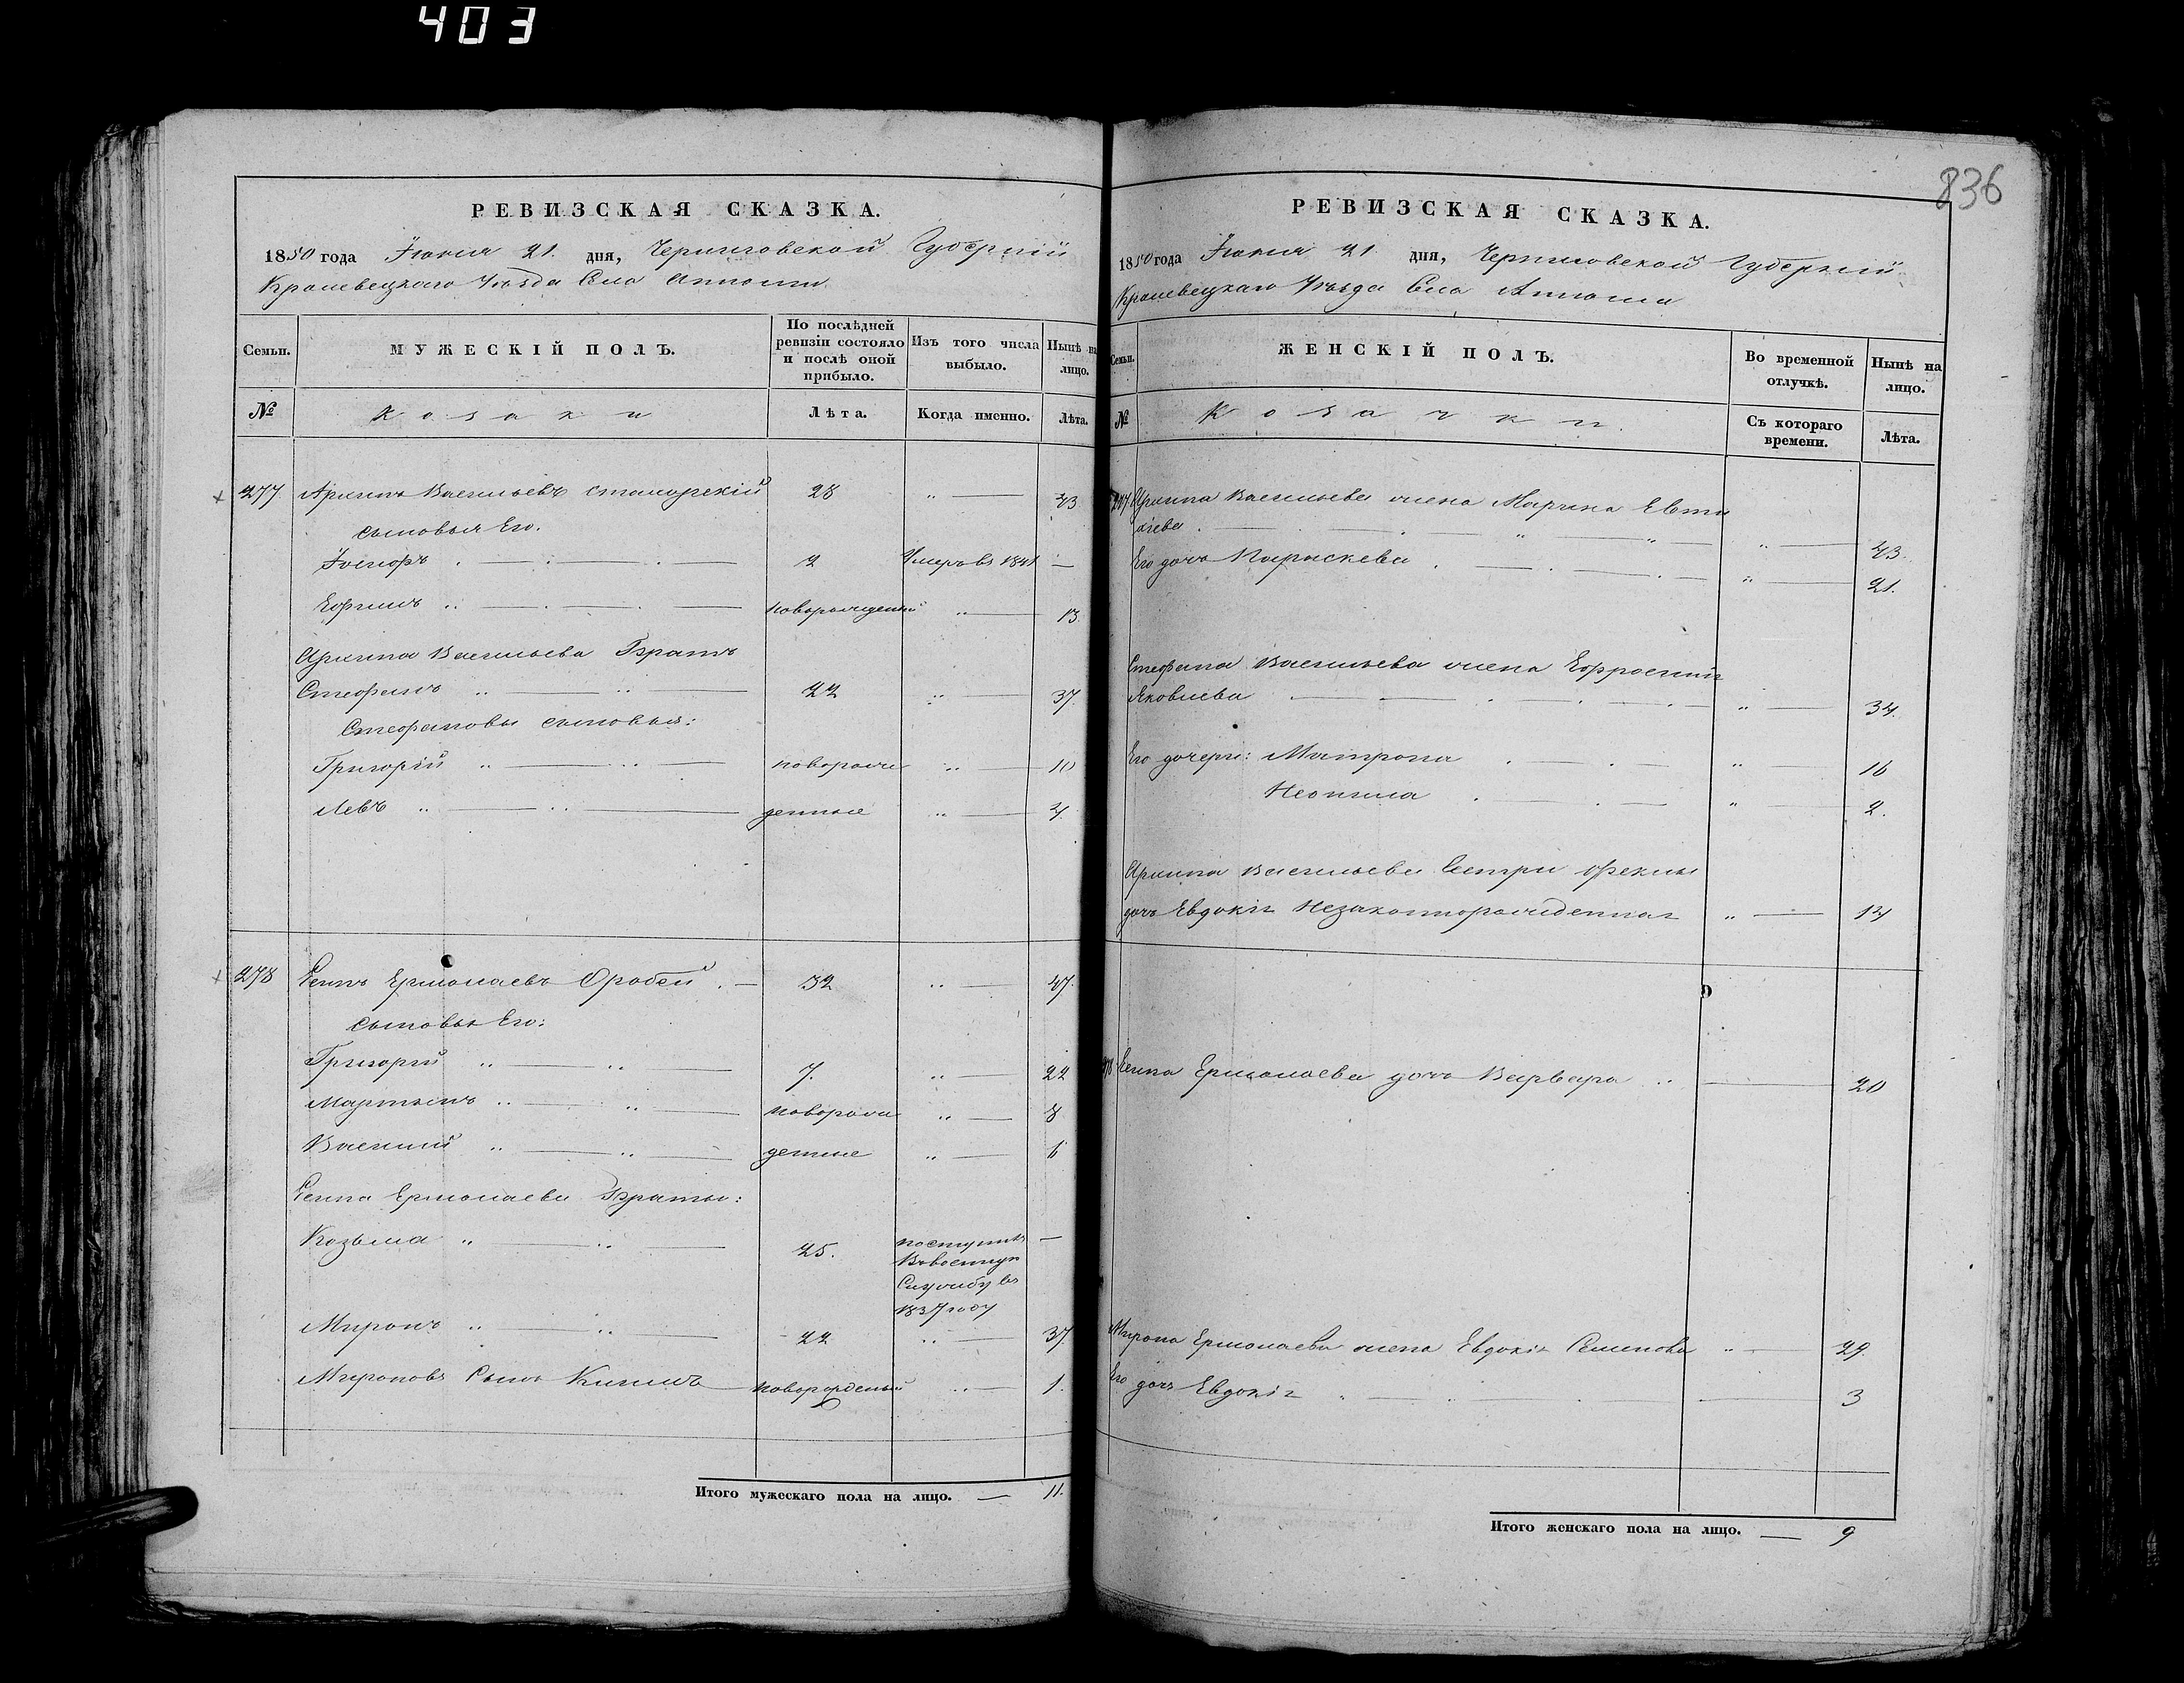 403
836
РЕВИЗСКАЯ СКАЗКА.
1850 года Іюня 21. дня, Черниговской Губерніи
Кролевецкаго Уѣзда Села
Семьи.
МУЖЕСКІЙ ПОЛЪ.
По послѣдней ревизіи состояло и послѣ оной прибыло.
Изъ того числа выбыло.
Нынѣ на лицо.
№
Козаки
Лѣта.
Когда именно.
Лѣта.
277. Васильевъ 28 " — 43
сыновья Его.
2 Умеръ въ 1841 —
Ефимъ новорожденный " — 13.
Васильева Братъ
Стефанъ 22 " — 37.
Стефановы сыновья:
Григорій новорож " — 10
Левъ денные " — 4.
278 Ермолаевъ 32 " — 47.
сыновья Его:
Григорій 7. " — 22
Мартынъ новорож " — 8
Василий денные " — 6
Ермолаева Браты:
Козьма 25. поступилъ —
Ввоенную
Службу въ
1837 году
Миронъ 22 " — 37.
Мироновъ Сынъ новорожденый " — 1.
Итого мужескаго пола на лицо. — 11.
РЕВИЗСКАЯ СКАЗКА.
1850 года Іюня 21 дня, Черниговской Губерніи
Кролевецкаго Уѣзда Села
Семьи.
ЖЕНСКІЙ ПОЛЪ.
Во временной отлучкѣ.
Нынѣ на лицо.
№
Козачки.
Съ котораго времени.
Лѣта.
277 Васильева жена Марина Евти
хіева " — 43.
Его дочь Параскева " — 21.
Стефана Васильева жена Ефросинія
Яковлева " — 34.
Его дочери: Матрона " — 16
Неонила " — 2.
Васильева Сестры Феклы
дочь Евдокія Незаконнорожденная " — 14
278 Ермолаева дочь Варвара " — 20
Мирона Ермолаева жена Евдокія Семенова " — 29.
Его дочь Евдокія " — 3
Итого женскаго пола на лицо. — 9